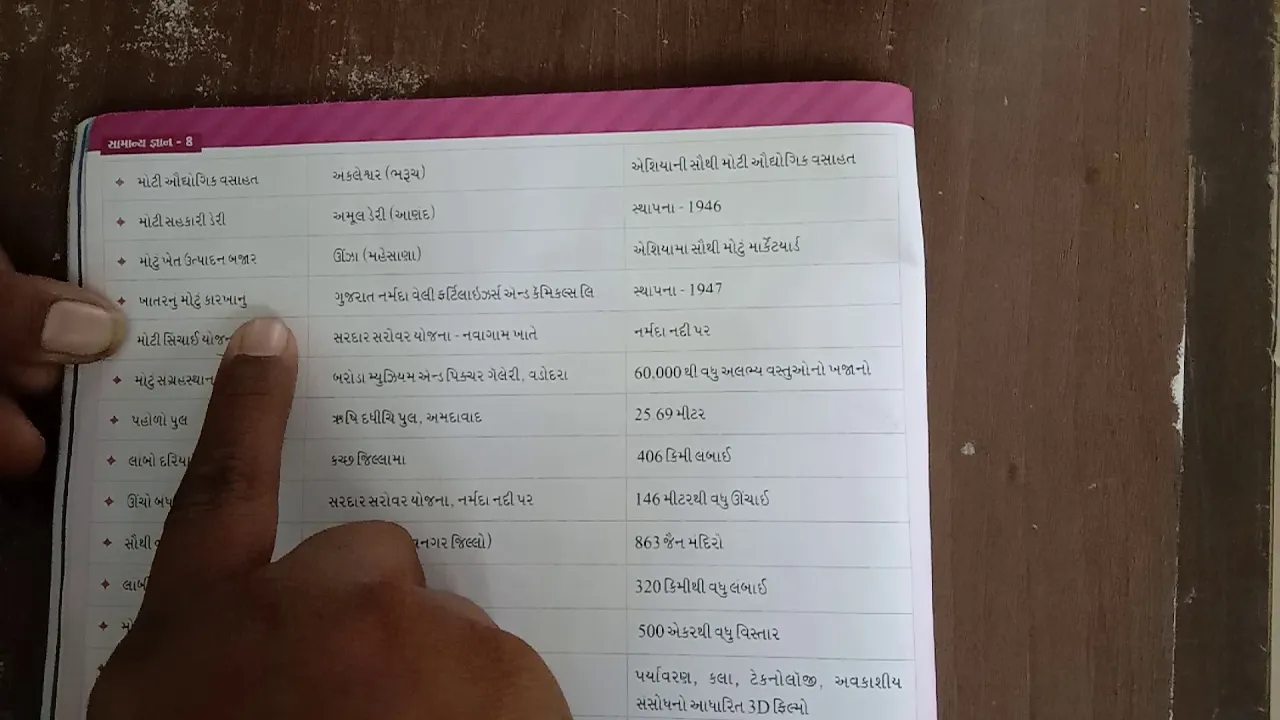 સામાન્ય જ્ઞાન - 8
મોટી ઔદ્યોગિક વસાહત અકલેશ્વર (ભરૂચ) એશિયાની સૌથી મોટી ઔદ્યોગિક વસાહત
મોટી સહકારી ડેરી અમૂલ ડેરી (આણદ) સ્થાપના - 1946
મોટુ ખેત ઉત્પાદન બજાર ઊંઝા (મહેસાણા) એશિયામા સૌથી મોટું માર્કેટયાર્ડ
ખાતરનુ મોટું કારખાનુ ગુજરાત નર્મદા વેલી ફર્ટિલાઇઝર્સ એન્ડ કેમિકલ્સ લિ સ્થાપના - 1947
મોટી સિચાઈ સરદાર સરોવર યોજના - નવાગામ ખાતે નર્મદા નદી પર
મોટું સગ્રહસ્થાન બરોડા મ્યુઝિયમ એન્ડ પિક્ચર ગેલેરી, વડોદરા 60.000 થી વધુ અલભ્ય વસ્તુઓનો ખજાનો
પહોળો પુલ ઋષિ દધીચિ પુલ, અમદાવાદ 25 69 મીટર
લાબો કચ્છ જિલ્લામા 406 કિમી લબાઈ
ઊંચો સરદાર સરોવર યોજના, નર્મદા નદી પર 146 મીટરથી વધુ ઊંચાઈ
સૌથી જિલ્લો) 863 જૈન મદિરો
320 કિમીથી વધુ લબાઈ
500 એકરથી વધુ વિસ્તાર
પર્યાવરણ, કલા, ટેકનોલૉજી, અવકાશીય
સંસોધનો આધારિત 3D ફિલ્મો